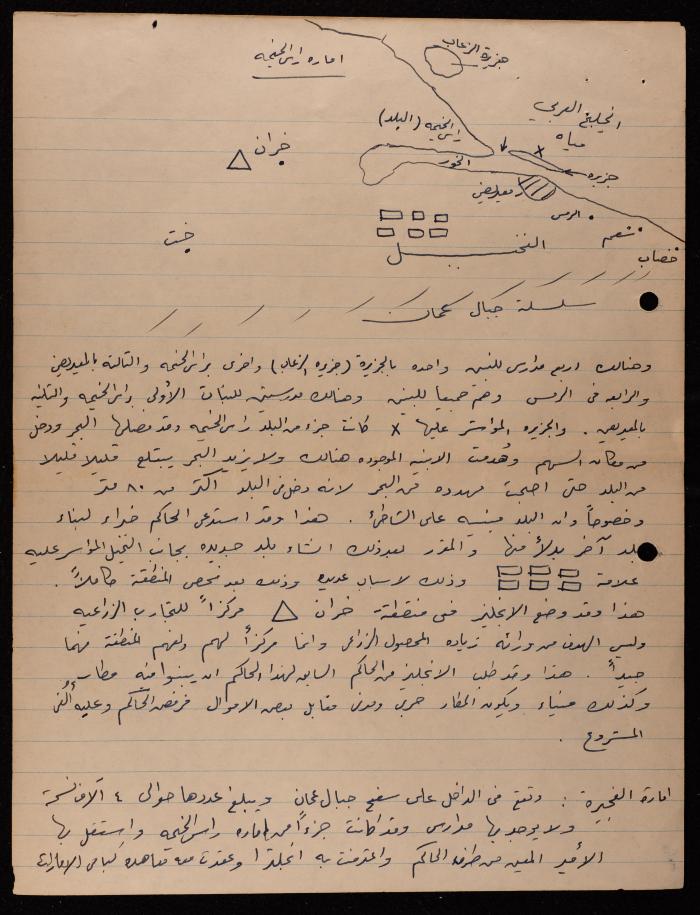 امارة راس الخيمه
جزيرة الزعاب
الخليج العربي
مياه
راس الخيمه (البلد)
خران
الخور
جزيره
معيريض
الرمس
شعم
خصاب
خت
النخيل
سلسلة جبال عمان
وهنالك اربع مدارس للبنين واحده بالجزيرة (جزيره الزعاب) واخرى براس الخيمه والثالثه بالمعيريض
والرابعه في الرمس وهم جميعا للبنين وهنالك مدرستين للبنات الأولى براس الخيمه والثانيه
بالمعيريض . والجزيره المؤشر عليها x كانت جزء من البلد راس الخيمه وقد فصلها البحر ودخل
من مكان السهم وهُدمت الابنيه الموجوده هنالك ولا يزيد البحر يبتلع قليلا قليلا
من البلد حتى اصبحت مهدده من البحر لانه دخل في البلد اكثر من ٨٠ متر
وخصوصاً وان البلد مبنيه على الشاطئ . هذا وقد استدعى الحاكم خبراء لبناء
بلد آخر بدلاً منها والمقرر بعد ذلك انشاء بلد جديده بجانب النخيل المؤشر عليه
علامة وذلك لاسباب عديده وذلك بعد فحص المنطقة كاملاً .
هذا وقد وضع الانجليز في منطقة خران △ مركزاً للتجارب الزراعيه
وليس الهدف من ورائه زياده المحصول الزراعي وانما مركزاً لهم ولفهم المنطقة فهما
جيداً . هذا وقد طلب الانجليز من الحاكم السابق لهذا الحاكم ان يبنوا فيه مطار
وكذلك ميناء ويكون المطار حربي ومدني مقابل بعض الاموال فرفض الحاكم وعليه أُلغي
المشروع .
امارة الفجيرة : وتقع في الداخل على سفح جبال عمان ويبلغ عددها حوالى ٤ آلاف نسمة
ولا يوجد بها مدارس وقد كانت جزءاً من اماره راس الخيمه واستقل بها
الأمير المعين من طرف الحاكم واعترفت به انجلترا وعقدت معه معاهده كباقي الامارات